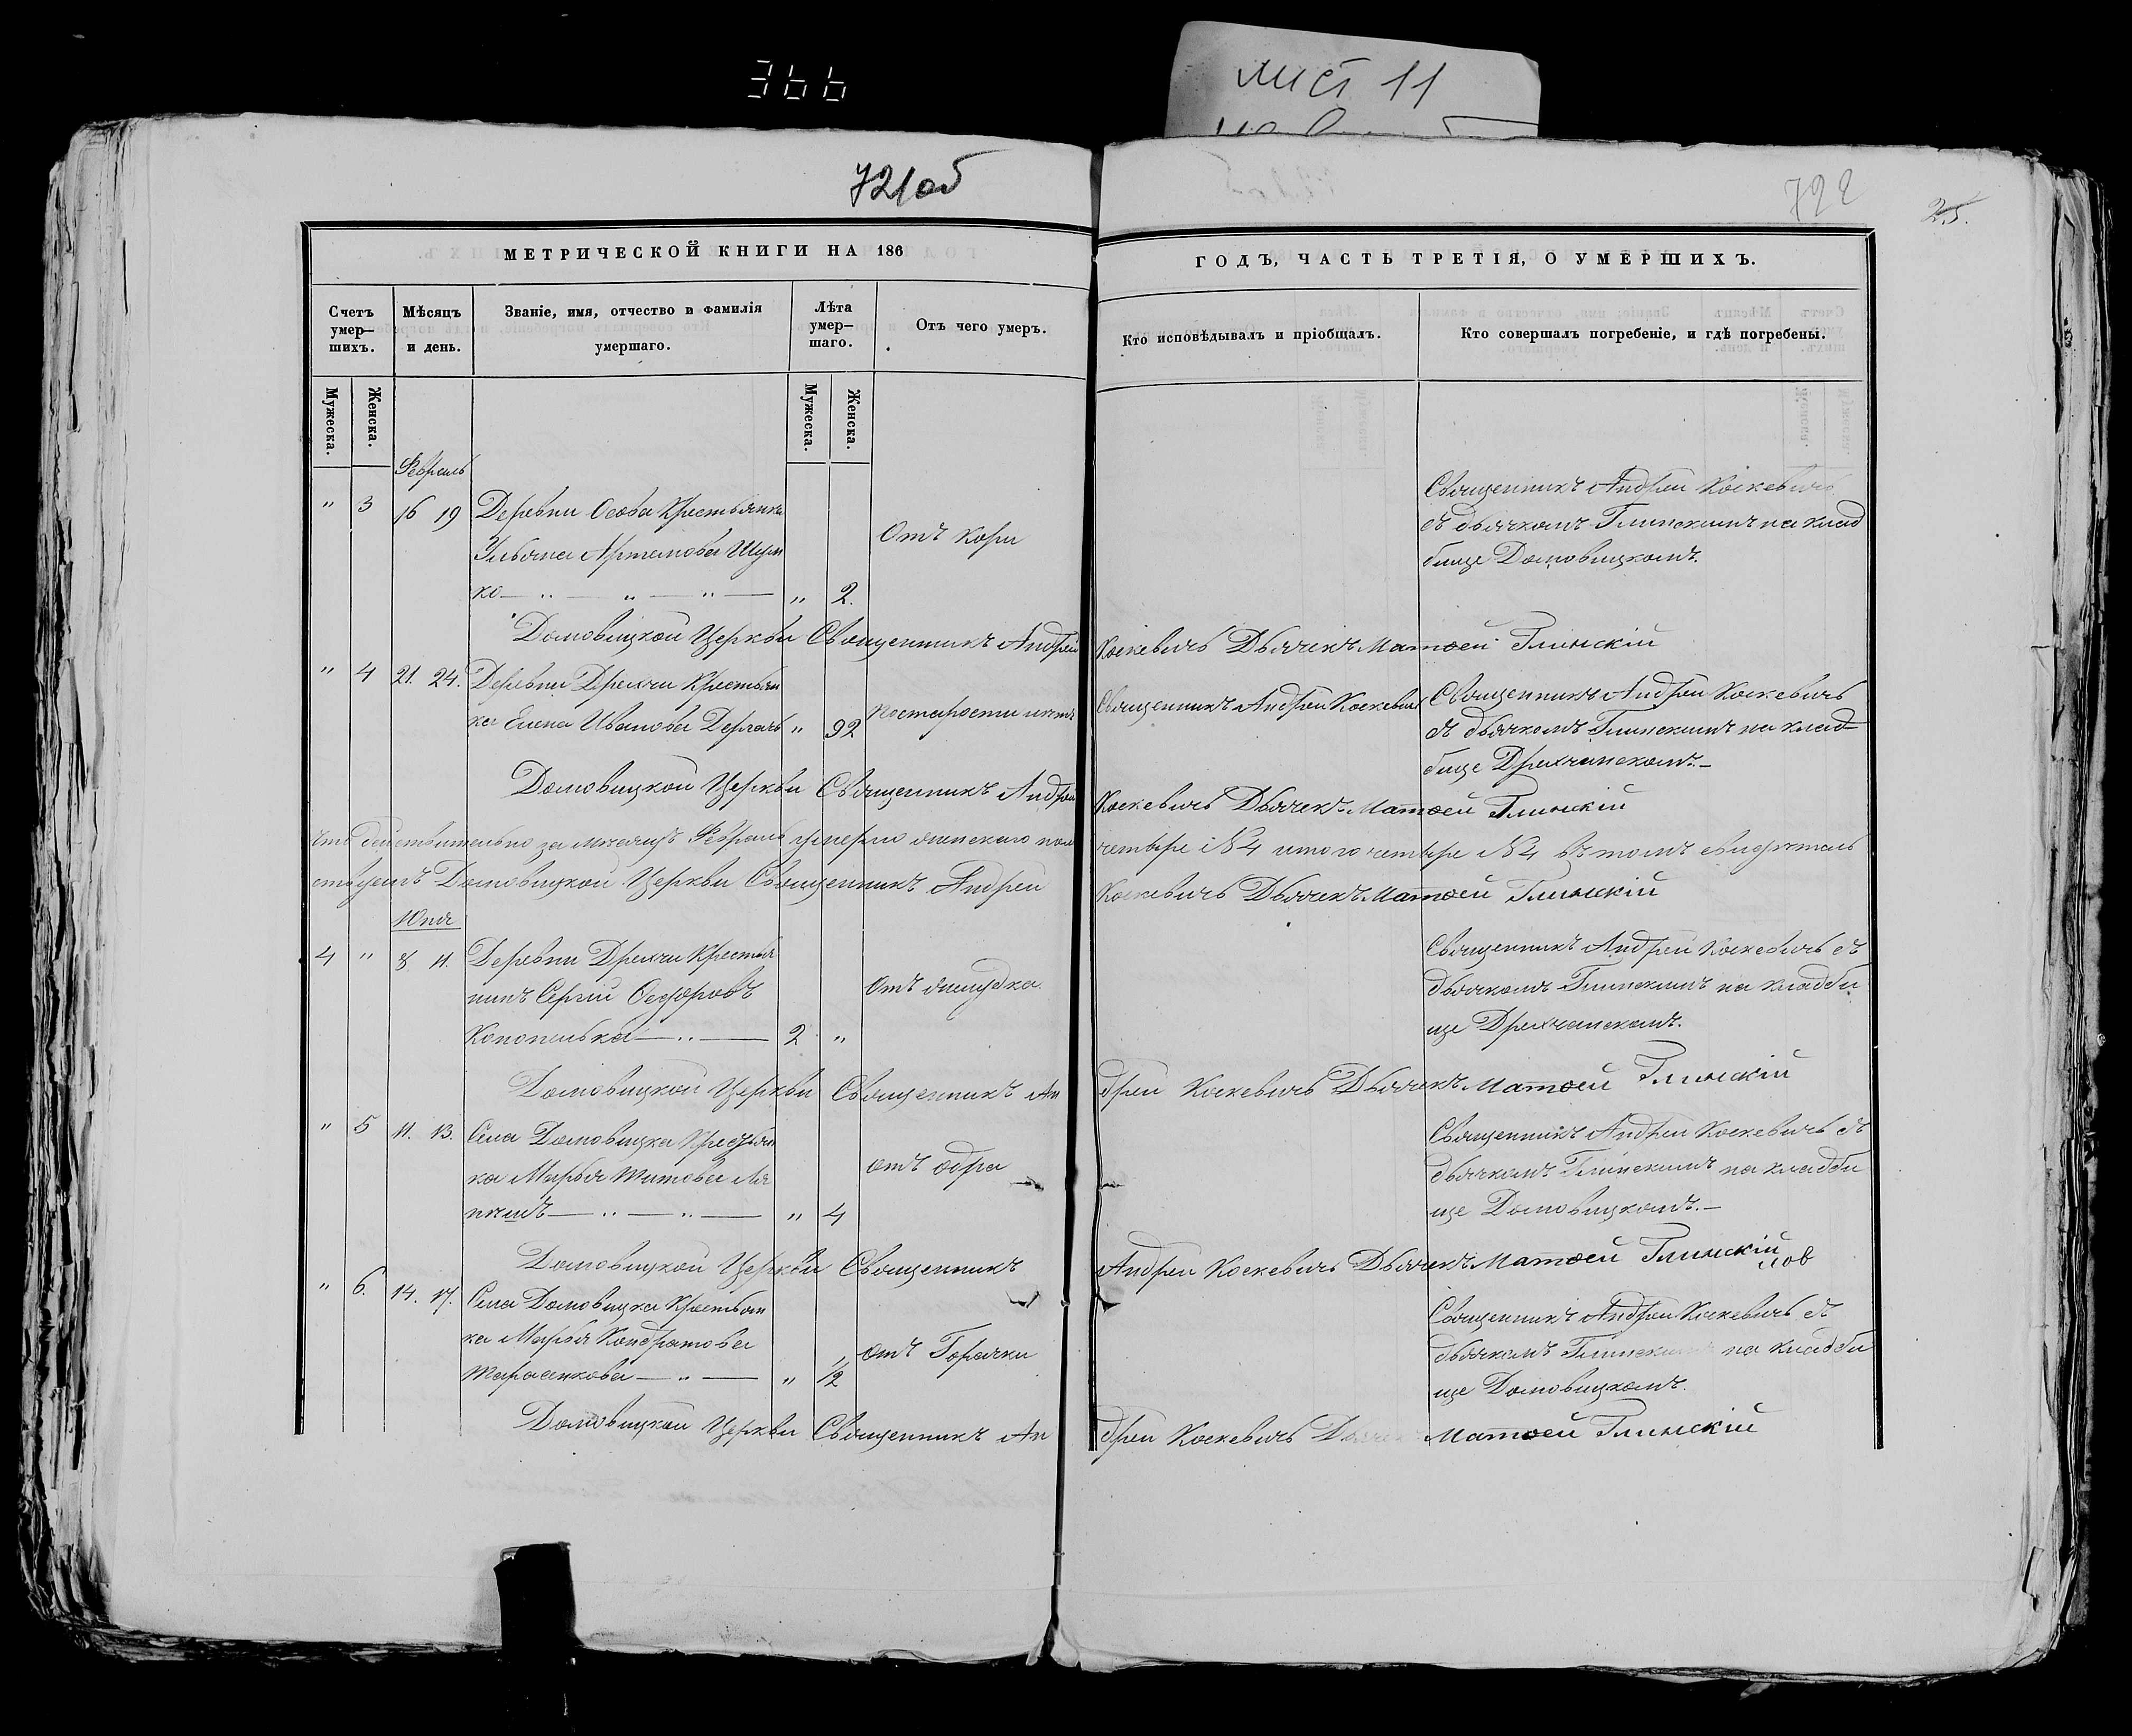 366
лист 11
721об
722
25.
МЕТРИЧЕСКОЙ КНИГИ НА 186
ГОДЪ, ЧАСТЬ ТРЕТІЯ, О УМЕРШИХЪ.
Счетъ умер—шихъ.
Мѣсяцъ и день.
Званіе, имя, отчество и фамилія умершаго.
Лѣта умер—шаго.
Отъ чего умеръ.
Кто исповѣдывалъ и пріобщалъ.
Кто совершалъ погребеніе, и гдѣ погребены.
Мужеска.
Женска.
Мужеска.
Женска.
Февраль
" 3 16 19 Деревни Особа Крестьянка
Ульяна Артемова Шум
ко — " — " — " — " 2.
Отъ Кори
Священникъ Андрей Коскевичь
съ дьячкомъ Глинскимъ на клад
бище Домовицкомъ.
Домовицкой Церкви Священникъ Андрей Коскевичь Дьячекъ Матѳей Глинскій
" 4 21. 24. Деревни Дрехчи Крестьян
ка Елена Иванова Дергачь " 92
Священникъ Андрей Коскевичь
Священникъ Андрей Коскевичь
съ дьячкомъ Глинскимъ на клад
бище Дрехчинскомъ. —
Домовицкой Церкви Священникъ Андрей Коскевичь Дьячекъ Матѳей Глинскій
Что действительно за месяцъ Февраль умерло женскаго пола четыре №4 итого четыре №4 въ томъ свидетель
ствуемъ Домовицкой Церкви Священникъ Андрей Коскевичь Дьячекъ Матѳей Глинскій
4 " 8 11. Деревни Дрехчи Крестья
нинъ Сергій Ѳедоровъ
Конопелька — " — 2 "
Отъ
Священникъ Андрей Коскевичь съ
дьячкомъ Глинскимъ на кладби
ще Дрехчанскомъ.
Домовицкой Церкви Священникъ Ан дрей Коскевичь Дьячекъ Матѳей Глинскій
" 5 11. 13. Села Домовицка Крестьян
ка Марья Титова
— " — " — " 4
отъ
Священникъ Андрей Коскевичь съ
дьячкомъ Глинскимъ на кладби
ще Домовицкомъ. —
Домовицкой Церкви Священникъ Андрей Коскевичь Дьячекъ Матѳей Глинскій
" 6. 14. 17. Села Домовицка Крестьян
ка Марья Кондратова
Тарасикова — " — " 1/2
отъ Горячки
Священникъ Андрей Коскевичь съ
дьячкомъ Глинскимъ на кладби
ще Домовицкомъ.
Домовицкой Церкви Священникъ Ан дрей Коскевичь Дьячекъ Матѳей Глинскій